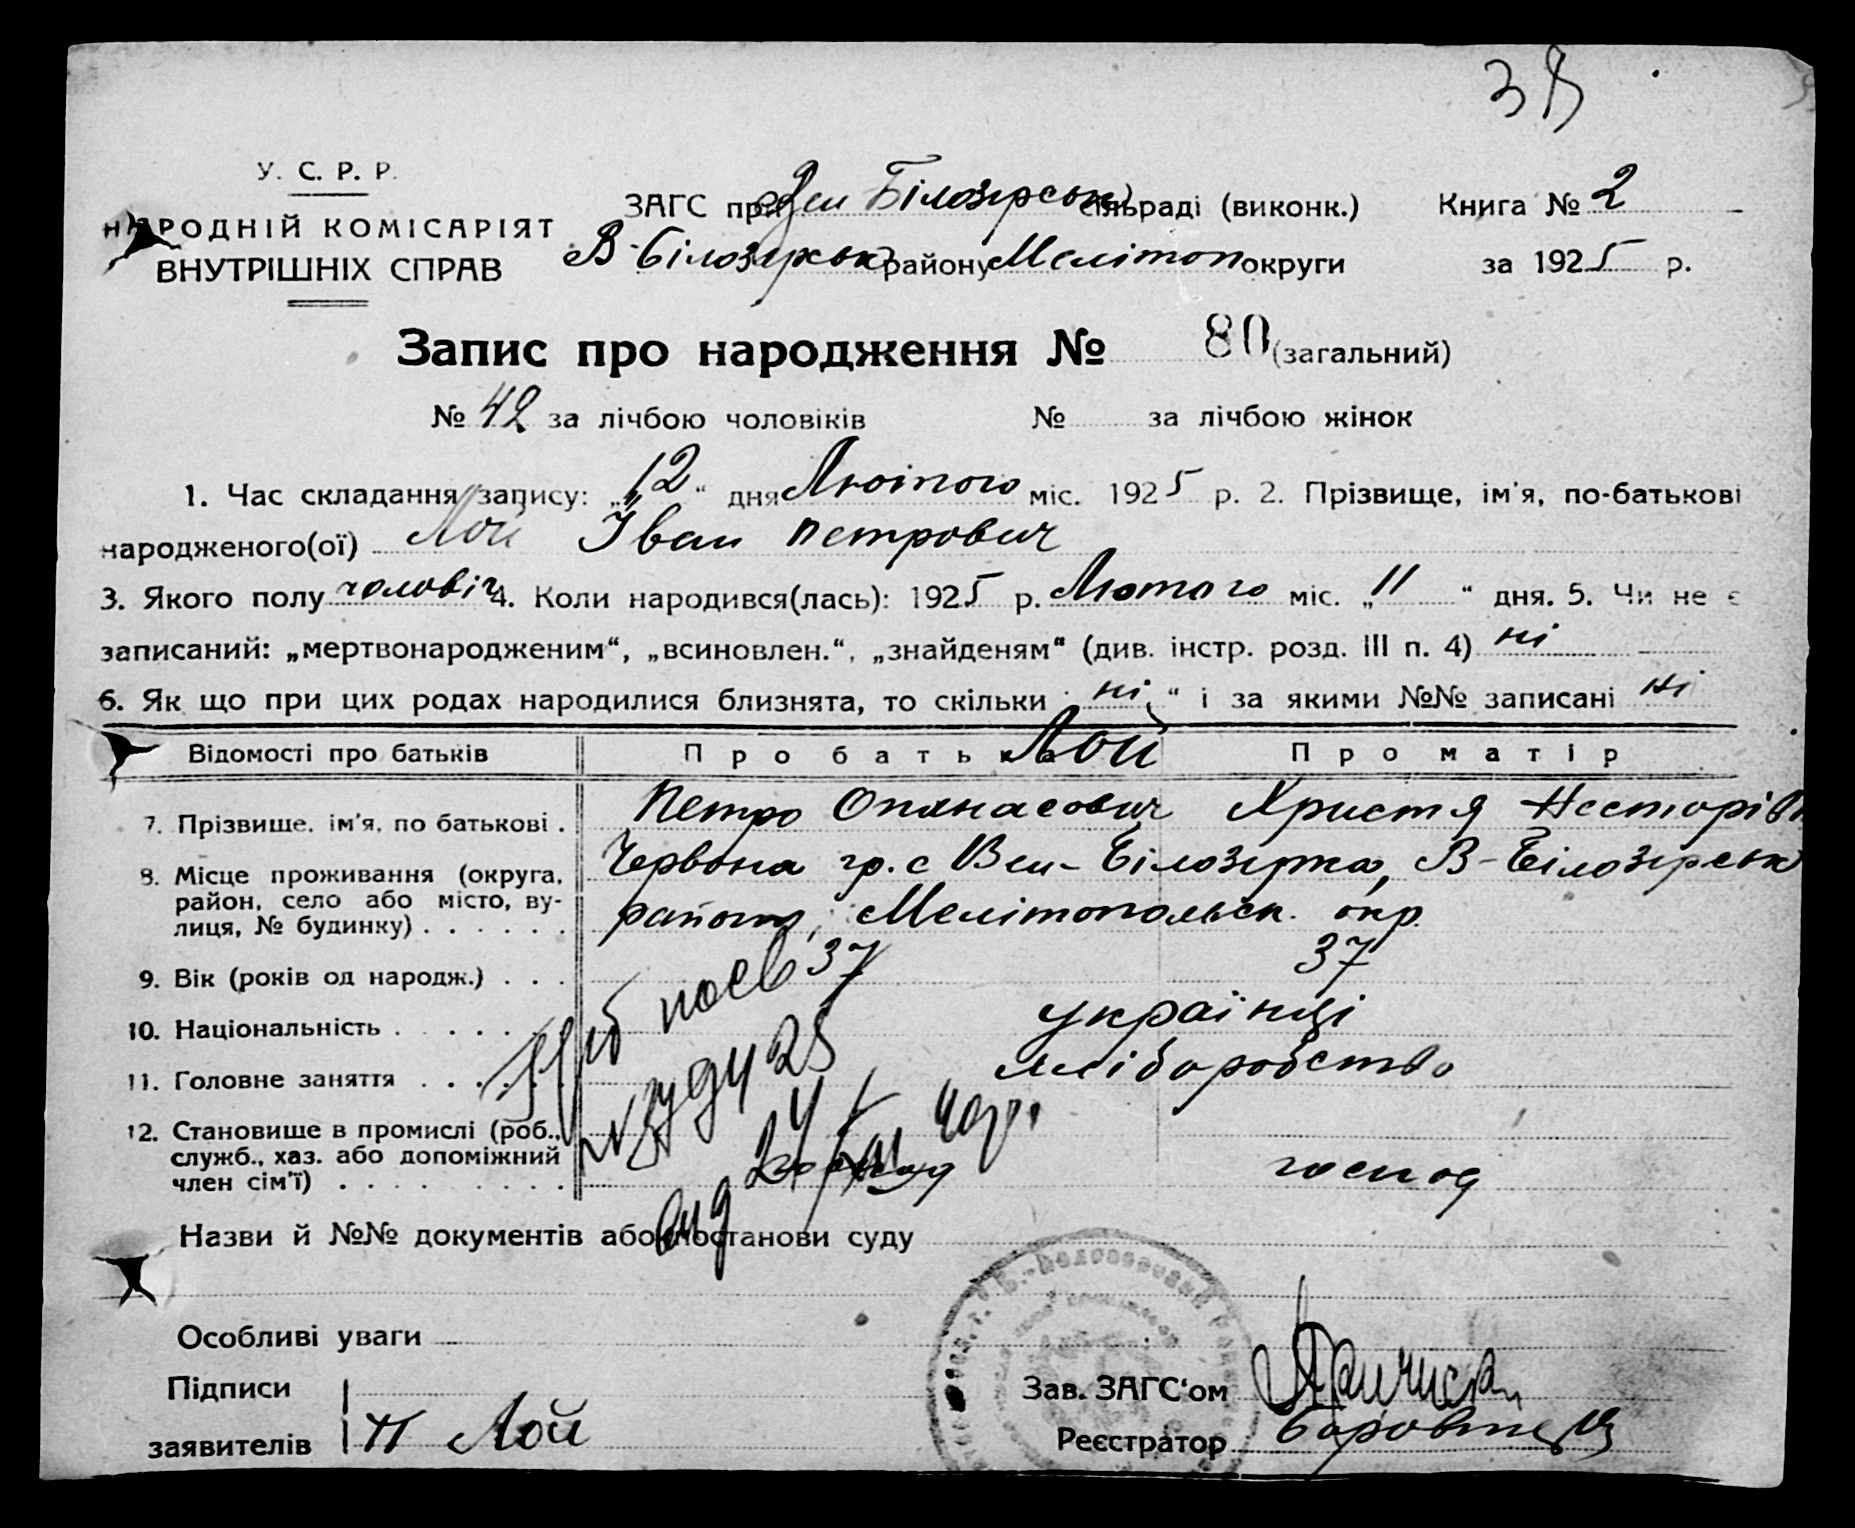 38
У. С. Р. Р.
НАРОДНІЙ КОМІСАРІЯТ
ВНУТРІШНІХ СПРАВ
ЗАГС при Вел Білозірськ сільраді (виконк.)
В-Білозірськ району Меліпоп округи
Книга № 2
за 1925 р.
Запис про народження № 80 (загальний)
№ 42 за лічбою чоловіків № за лічбою жінок
1. Час складання запису: „12“ дня Лютого міс. 1925 р. 2. Прізвище, ім'я, по-батькові
народженого(ої) Лой Іван Петрович
3. Якого полу чоловіч 4. Коли народився(лась): 1925 р. Лютого міс. „11“ дня. 5. Чи не є
записаний: „мертвонародженим“, „всиновлен.“, „знайденям“ (див. інстр. розд. III п. 4) ні
6. Як що при цих родах народилися близнята, то скільки ні “ і за якими №№ записані ні
Відомості про батьків Про батька Про матір
Лой
7. Прізвище, ім'я, по батькові . Петро Опанасович Христя Несторівн
8. Місце проживання (округа, район, село або місто, вулиця, № будинку) . . . . . . Червона гр. с Вел-Білозірка, В-Білозірськ
району, Мелітопольск. окр.
9. Вік (років од народж.) . . . 37 37
10. Національність . . . . . українці
11. Головне заняття . . . . . хліборобство
12. Становище в промислі (роб., служб., хаз. або допоміжний член сім'ї) . . . . . . . господ господ
Назви й №№ документів або постанови суду
Особливі уваги
Підписи
заявителів П Лой
Зав. ЗАГС'ом
Реєстратор